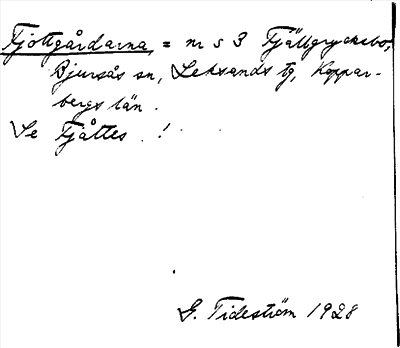 Tjottgårdarna, = nr s 3 Fjällgrycksbo,
Bjursås sn, Leksands tg, Koppar-
bergs län.
Se Tjåttes !
G. Tideström 1928